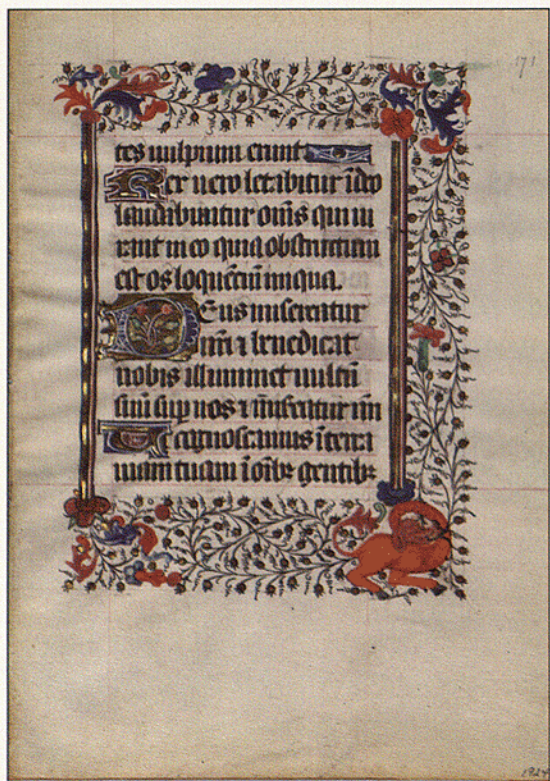 171
tes uulpium erunt
Rex uero letabitur ī deo
laudabuntur om̄s qui iu
rant in eo quia obstructum
est os loquētiū iniqua.
Deus misereatur
nr̄i ⁊ benedicat
nobis illuminet uultū
suū sup nos ⁊ misereatur nr̄i
Ut cognoscamus ī terra
uiam tuam ī oīb gentib